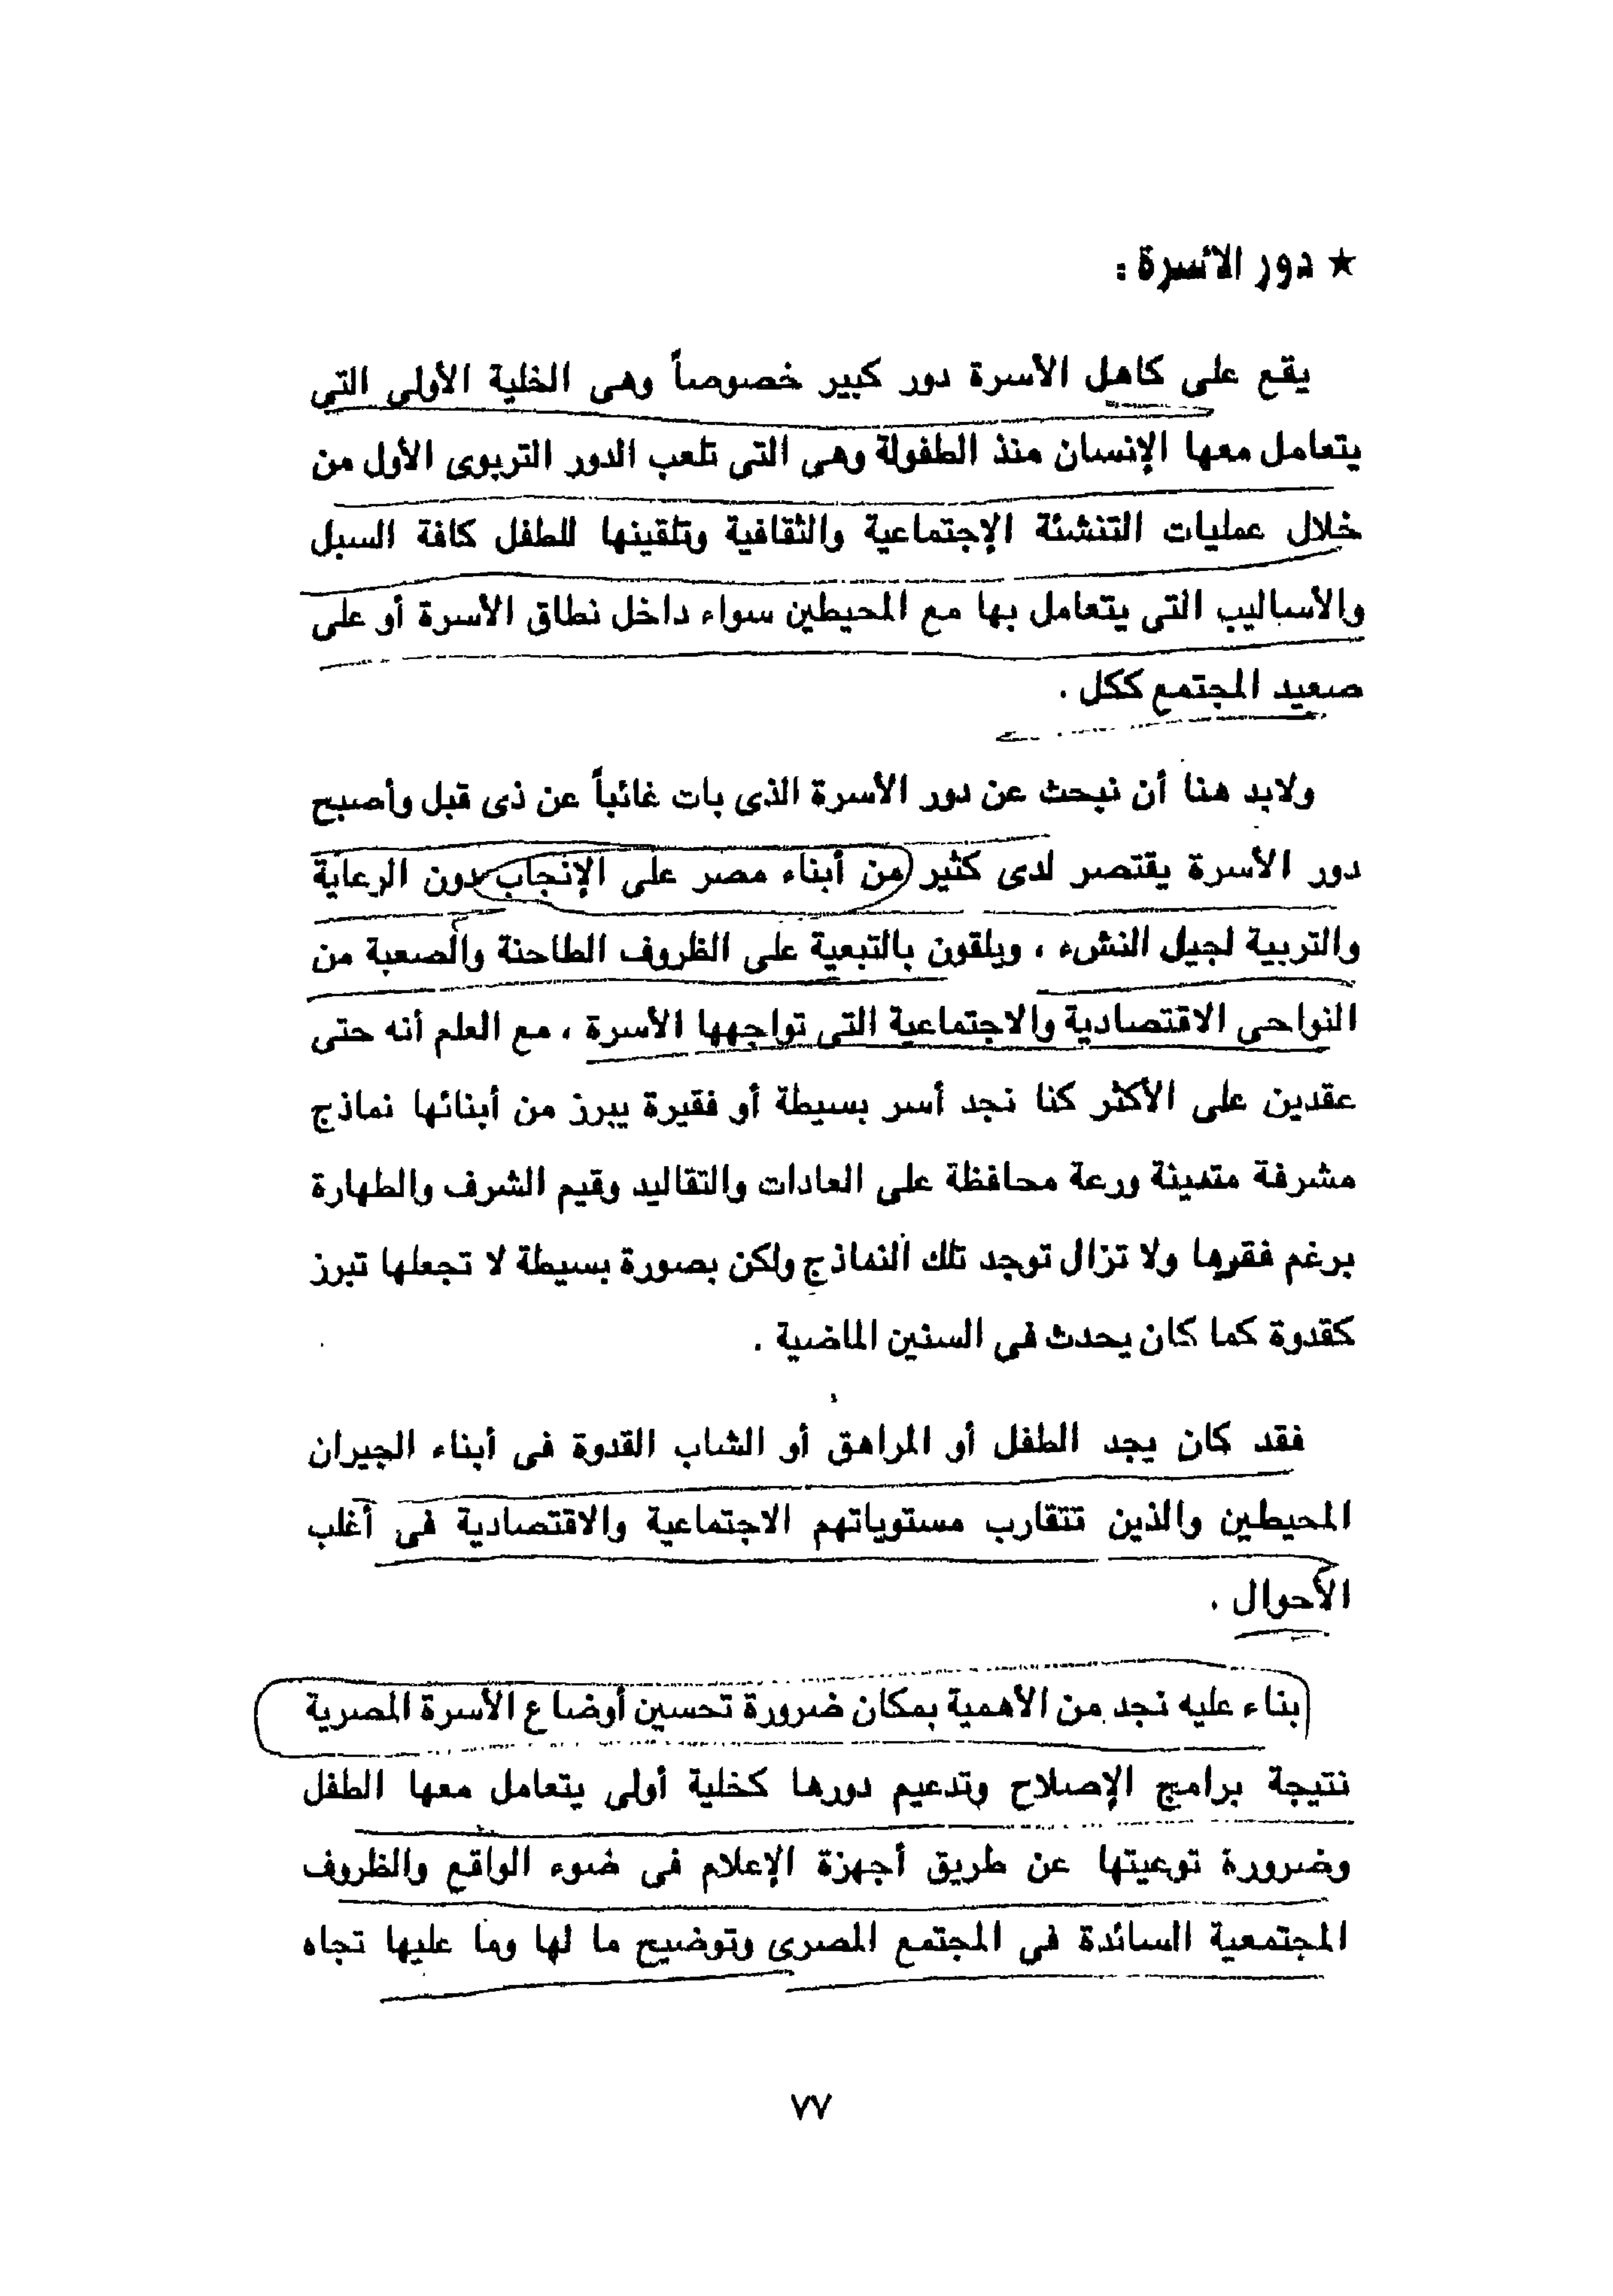 ★ دور الأسرة :
يقع على كاهل الأسرة دور كبير خصوصاً وهى الخلية الأولى التى
يتعامل معها الإنسان منذ الطفولة وهى التى تلعب الدور التربوى الأول من
خلال عمليات التنشئة الإجتماعية والثقافية وتلقينها للطفل كافة السبل
والأساليب التى يتعامل بها مع المحيطين سواء داخل نطاق الأسرة أو على
صعيد المجتمع ككل .
ولابد هنا أن نبحث عن دور الأسرة الذى بات غائباً عن ذى قبل وأصبح
دور الأسرة يقتصر لدى كثير من أبناء مصر على الإنجاب دون الرعاية
والتربية لجيل النشء ، ويلقون بالتبعية على الظروف الطاحنة والصعبة من
النواحى الاقتصادية والاجتماعية التى تواجهها الأسرة ، مع العلم أنه حتى
عقدين على الأكثر كنا نجد أسر بسيطة أو فقيرة يبرز من أبنائها نماذج
مشرفة متدينة ورعة محافظة على العادات والتقاليد وقيم الشرف والطهارة
برغم فقرها ولا تزال توجد تلك النماذج ولكن بصورة بسيطة لا تجعلها تبرز
كقدوة كما كان يحدث فى السنين الماضية .
فقد كان يجد الطفل أو المراهق أو الشاب القدوة فى أبناء الجيران
المحيطين والذين تتقارب مستوياتهم الاجتماعية والاقتصادية فى أغلب
الأحوال .
بناء عليه نجد من الأهمية بمكان ضرورة تحسين أوضاع الأسرة المصرية
نتيجة برامج الإصلاح وتدعيم دورها كخلية أولى يتعامل معها الطفل
وضرورة توعيتها عن طريق أجهزة الإعلام فى ضوء الواقع والظروف
المجتمعية السائدة فى المجتمع المصرى وتوضيح ما لها وما عليها تجاه
٧٧